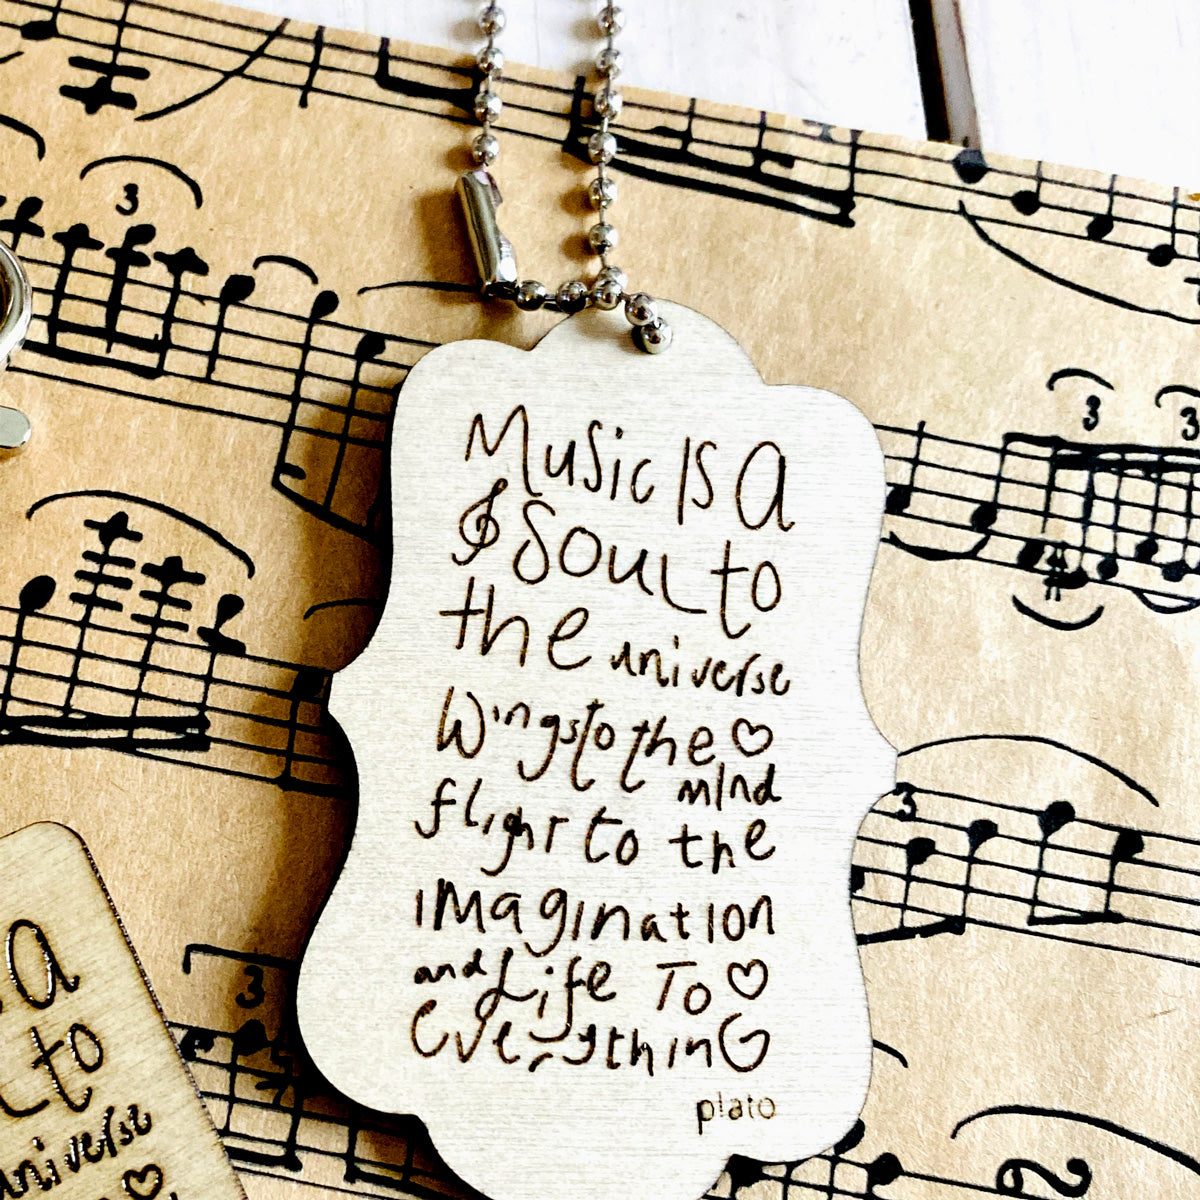 Music IS A
SOUL to
the universe
Wings to the
mInd
flight to the
imagination
and Life To
everythinG
plato
a
to
universe
3
3
3
3
3